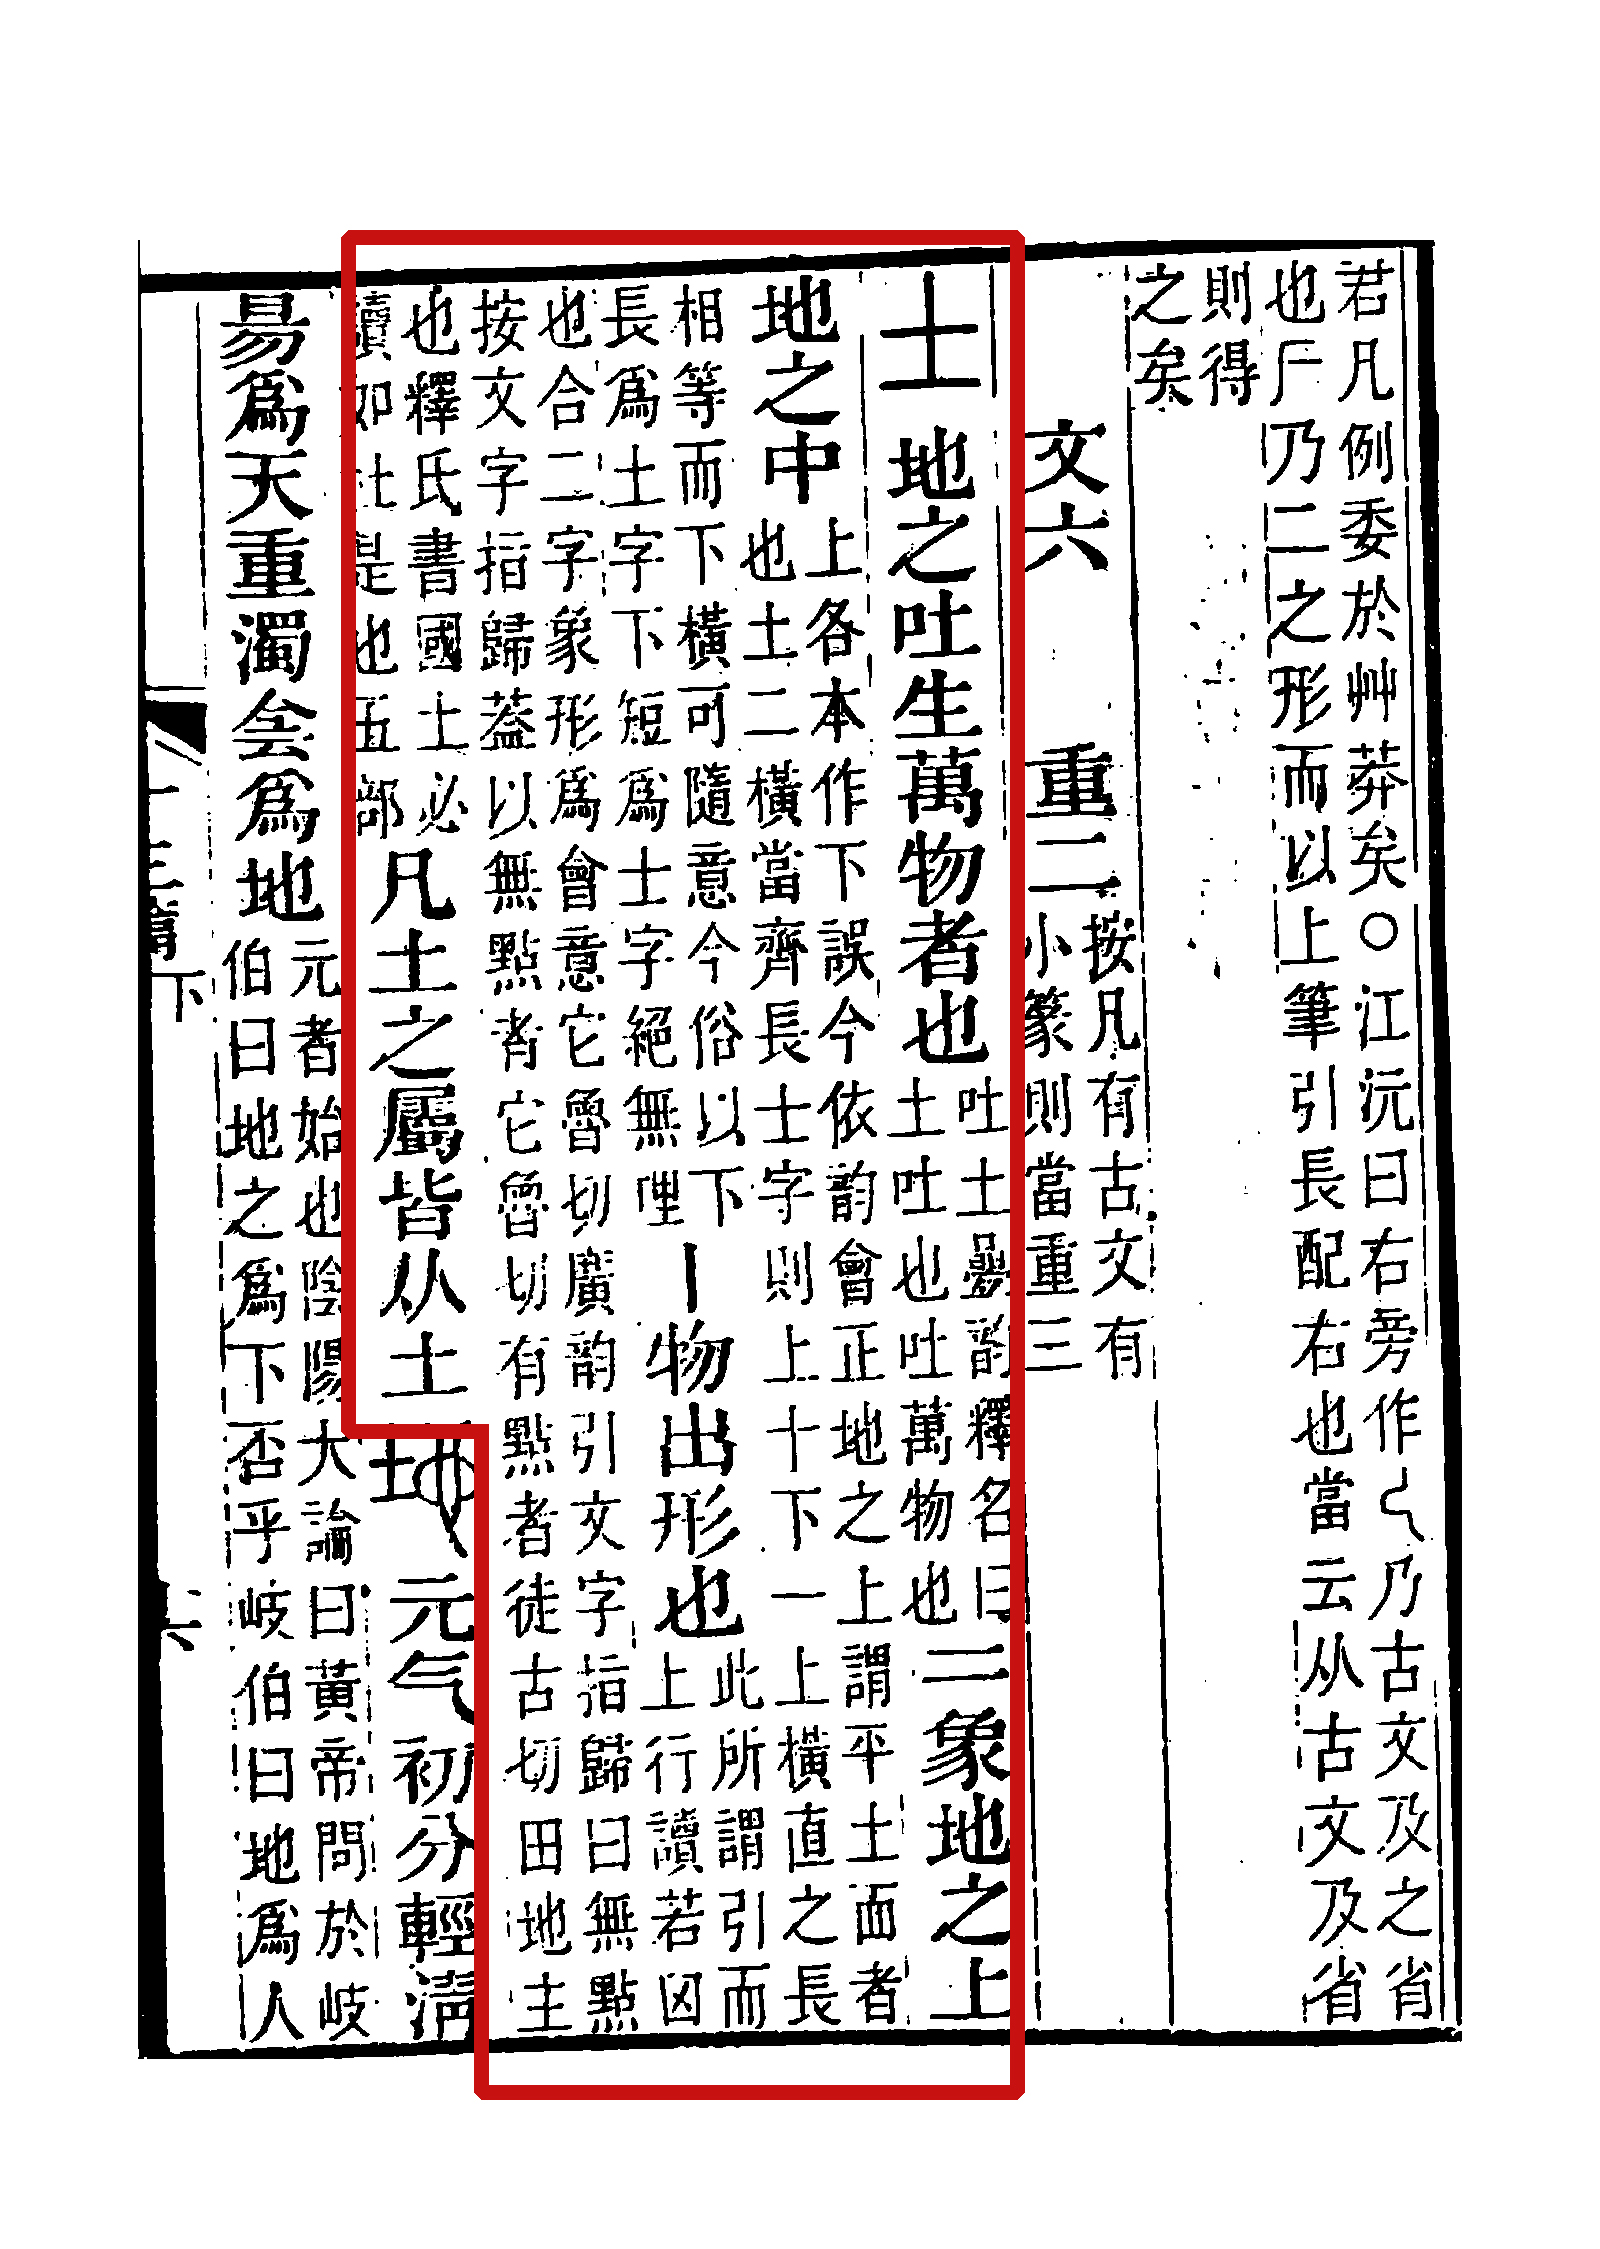 君凡例委於艸莽矣○江沅曰右旁作乁乃古文及之省
也𠂆乃二之形而以上筆引長配右也當云从古文及省
則得
之矣
文六 重二
按凡有古文有
小篆則當重三
土 地之吐生萬物者也
吐土疊韵釋名曰
土吐也吐萬物也
二象地之上
地之中
上各本作下誤今依韵會正地之上謂平土面者
也土二橫當齊長士字則上十下一上橫直之長
相等而下橫可隨意今俗以下
長爲土字下短爲士字絕無理
丨物出形也
此所謂引而
上行讀若囟
也合二字象形爲會意它魯切廣韵引文字指歸曰無點
按文字指歸蓋以無點者它魯切有點者徒古切田地主
也釋氏書國土必
讀如杜是也五部
凡土之屬皆从土
地 元气初分輕清
昜爲天重濁侌爲地
元者始也陰陽大論曰黃帝問於岐
伯曰地之爲下否乎岐伯曰地爲人
十三篇下
六